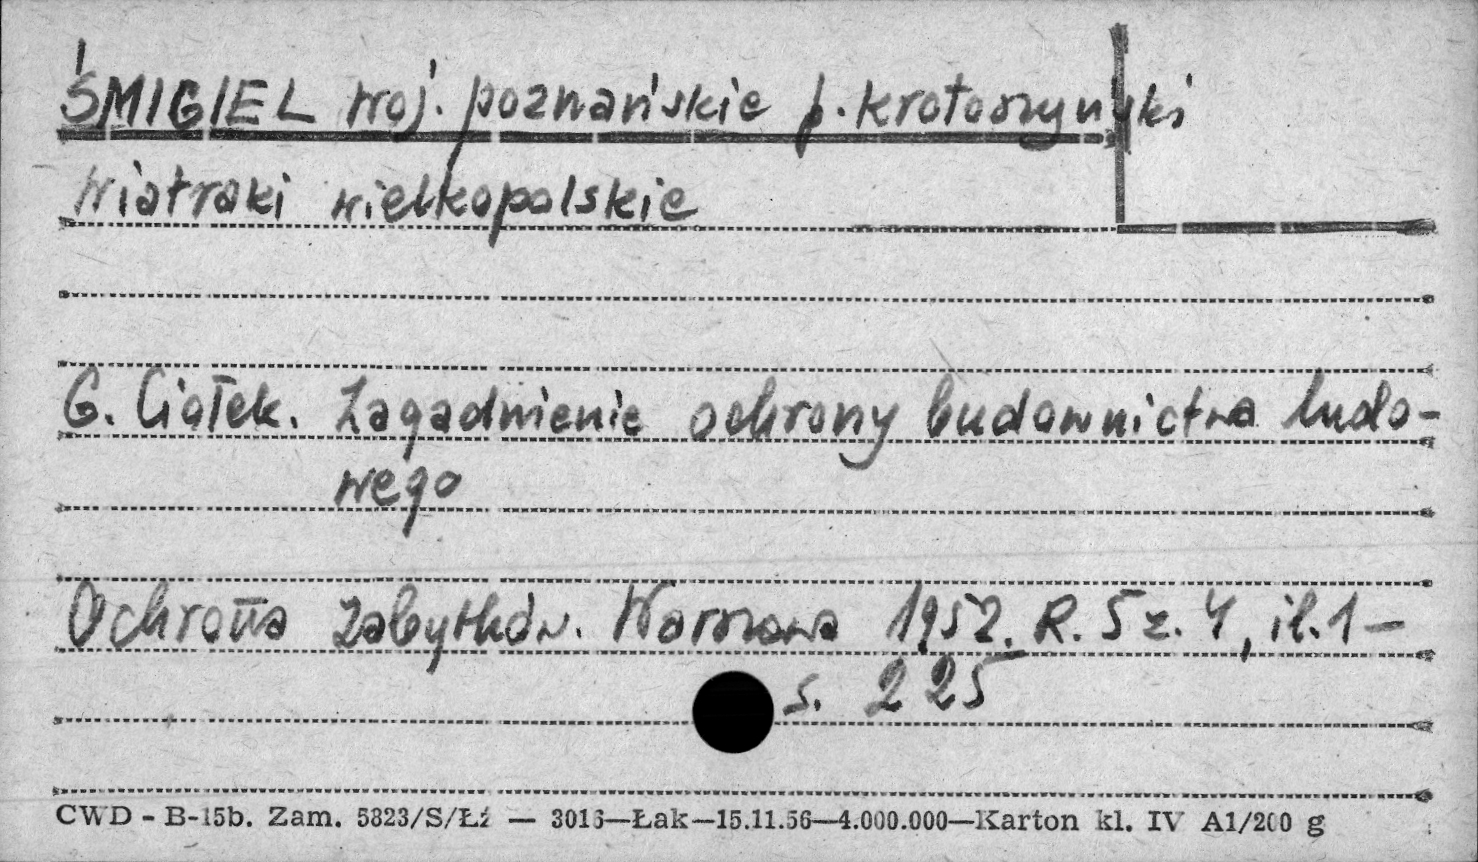 ŚMIGIEL woj. poznańskie p. krotoszyński
Wiatraki wielkopolskie
G. Ciołek. Zagadnienie ochrony budownictwa ludo-
wego
Ochrona Zabytków. Warszawa 1952. R. 5 z. 4, il. 1 —
s. 225
CWD - B-15b. Zam. 5823/S/Łź — 3016—Łak—15.11.56—4.000.000—Karton kl. IV A1/200 g